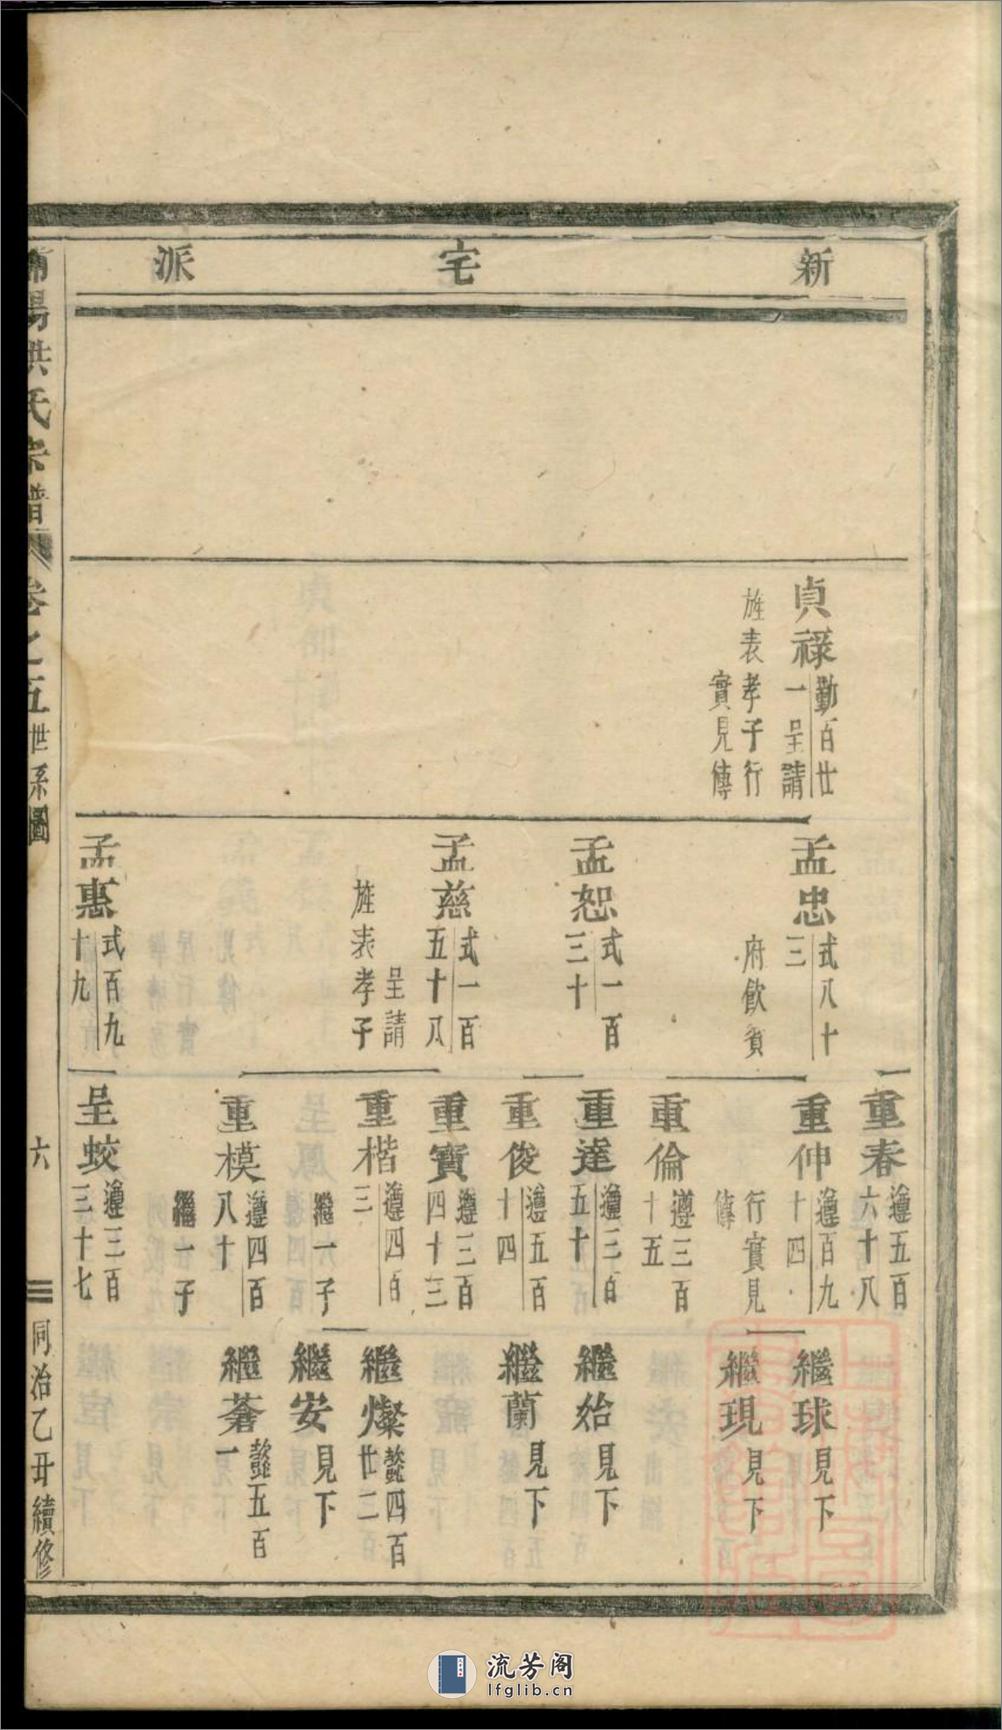 新宅派
貞祿
勤百廿
一呈請
旌表孝子行
實見傳
孟忠
式八十
三
府飲賓
孟恕
式一百
三十
孟慈
式一百
五十八
呈請
旌表孝子
孟惠
式百九
十九
重春
遵五百
六十八
重仲
遵百九
十四
行實見
傳
重倫
遵三百
十五
重達
遵三百
五十
重俊
遵五百
十四
重寶
遵三百
四十三
重楷
遵四百
三
繼一子
重模
遵四百
八十
繼一子
呈蛟
遵三百
三十七
繼球見下
繼現見下
繼始見下
繼蘭見下
繼燦
懿四百
廿二
繼安見下
繼蒼
懿五百
一
陽洪氏宗譜
卷之五
世系圖
六
同治乙丑續修
流芳阁
lfglib.cn